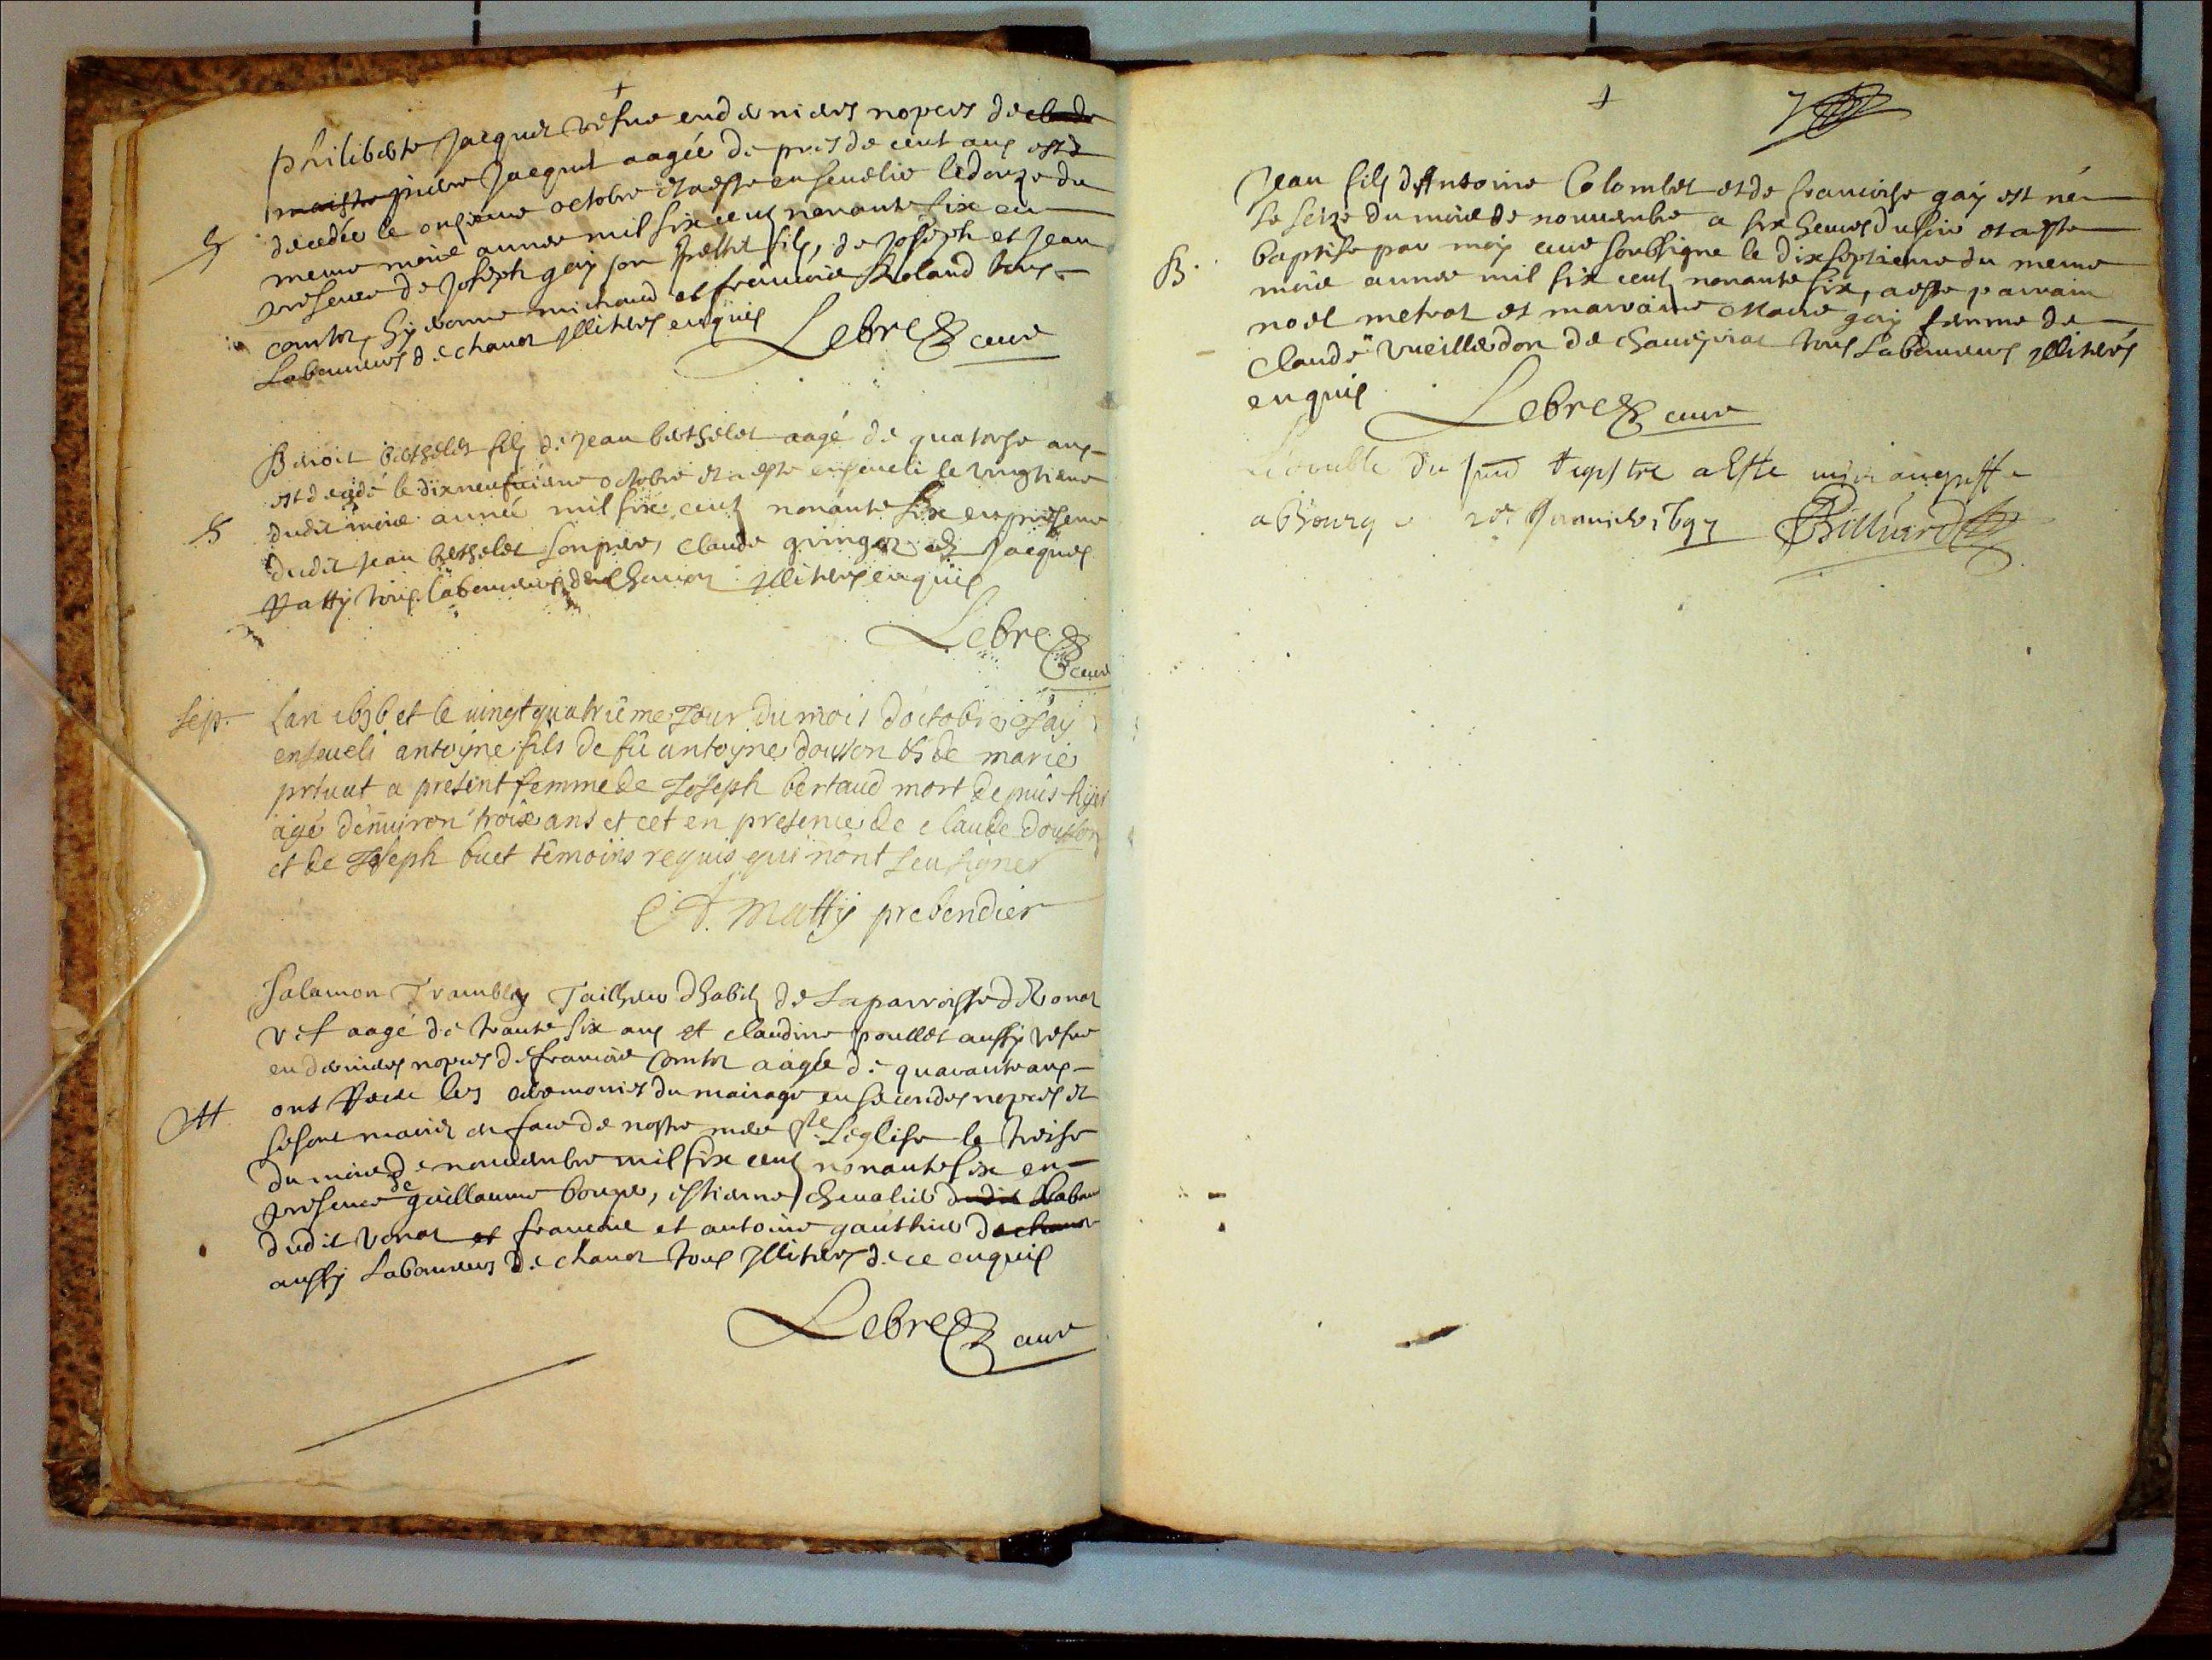 Philiberte Jacquet vefve en derniers nopces de claude
maistre pierre Jacquet aagée de pres de cent ans est
decedée le onsieme octobre et a esté ensevelie le douze du
S
meme moic année mil six cent nonante six en
presence de Joseph gay son petit fils, de Joseph et Jean
comtet, michaud et francoie Roland tous
Laboureurs de chanoz Illiteres enquis
Lebret curé
Benoit berthelet fils de Jean berthelet aagé de quatorse ans
est decedé le dixneufuieme octobre et a esté enseveli le vingtieme
S
dudit moic année mil six cent nonante six en presence
dudit Jean berthelet son pere, claude gringoz et Jacques
patty tous laboureurs de Chanoz Illiteres enquis
Lebret
curé
Sep.
Lan 1696 et le vingtquatrieme Jour du mois doctobre Jay
enseueli antoyne fils de fû antoyne dousson et de marie
pruuat a present femme de Joseph bertaud mort depuis hyer
agé denuiron trois ans et cet en presence de claude dousson
et de Joseph buet temoins requis qui nont seu signer
Matty prebendier
Salamon Trambley Tailheur dhabit de La parroisse de Vonaz
vef aagé de trante six ans et claudine poullet aussy vefve
en dernieres nopces de francoie Comtet aagée de quarante ans
ont receu les ceremonies du mairage en secondes nopces et
M
se sont mariez en face de nostre mere ste Léglise le treise
du moic de nouuembre mil six cent nonante six en
presence de guillaume bouye, estienne chevalier dudit Labour
dudit Vonaz et francoie et antoine gauthier de chanoz
aussy Laboureurs de chanoz tous Illiteres de ce enquis
Lebret curé
7
Jean fils dAntoine Colombet et de francoise gay est né
le seize du moic de nouuembre a six heures du soir et a esté
B.
baptise par moy curé soubsigné le dixseptieme du meme
moic année mil six cent nonante six, a esté parrain
noel metrat et marraine Marie gay femme de
claude vueilledon de chaueyriat tous Laboureurs Illiterés
enquis
Lebret curé
Le double du pnt registre a esté mis au greffe
a bourg ce 20e Januier 1697 Billiard